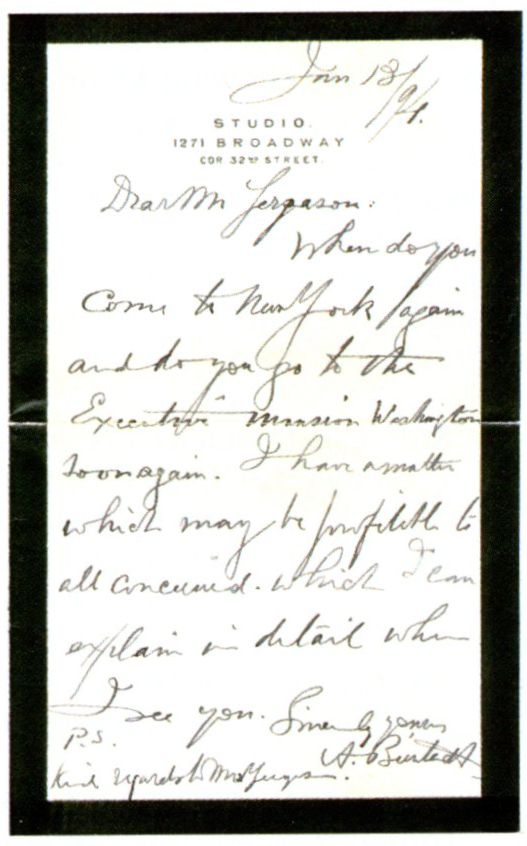 Jan 13/94.
STUDIO.
1271 BROADWAY
COR 32ND STREET.
Dear Mr Fergason:
When do you
Come to New York again
and do you go to the
Executive mansion Washington
soon again. I have a matter
which may be profitible to
all concerned. which I can
explain in detail when
I see you. Sincerely yours
P.S. A.
Kind regards to Mrs Fergason.